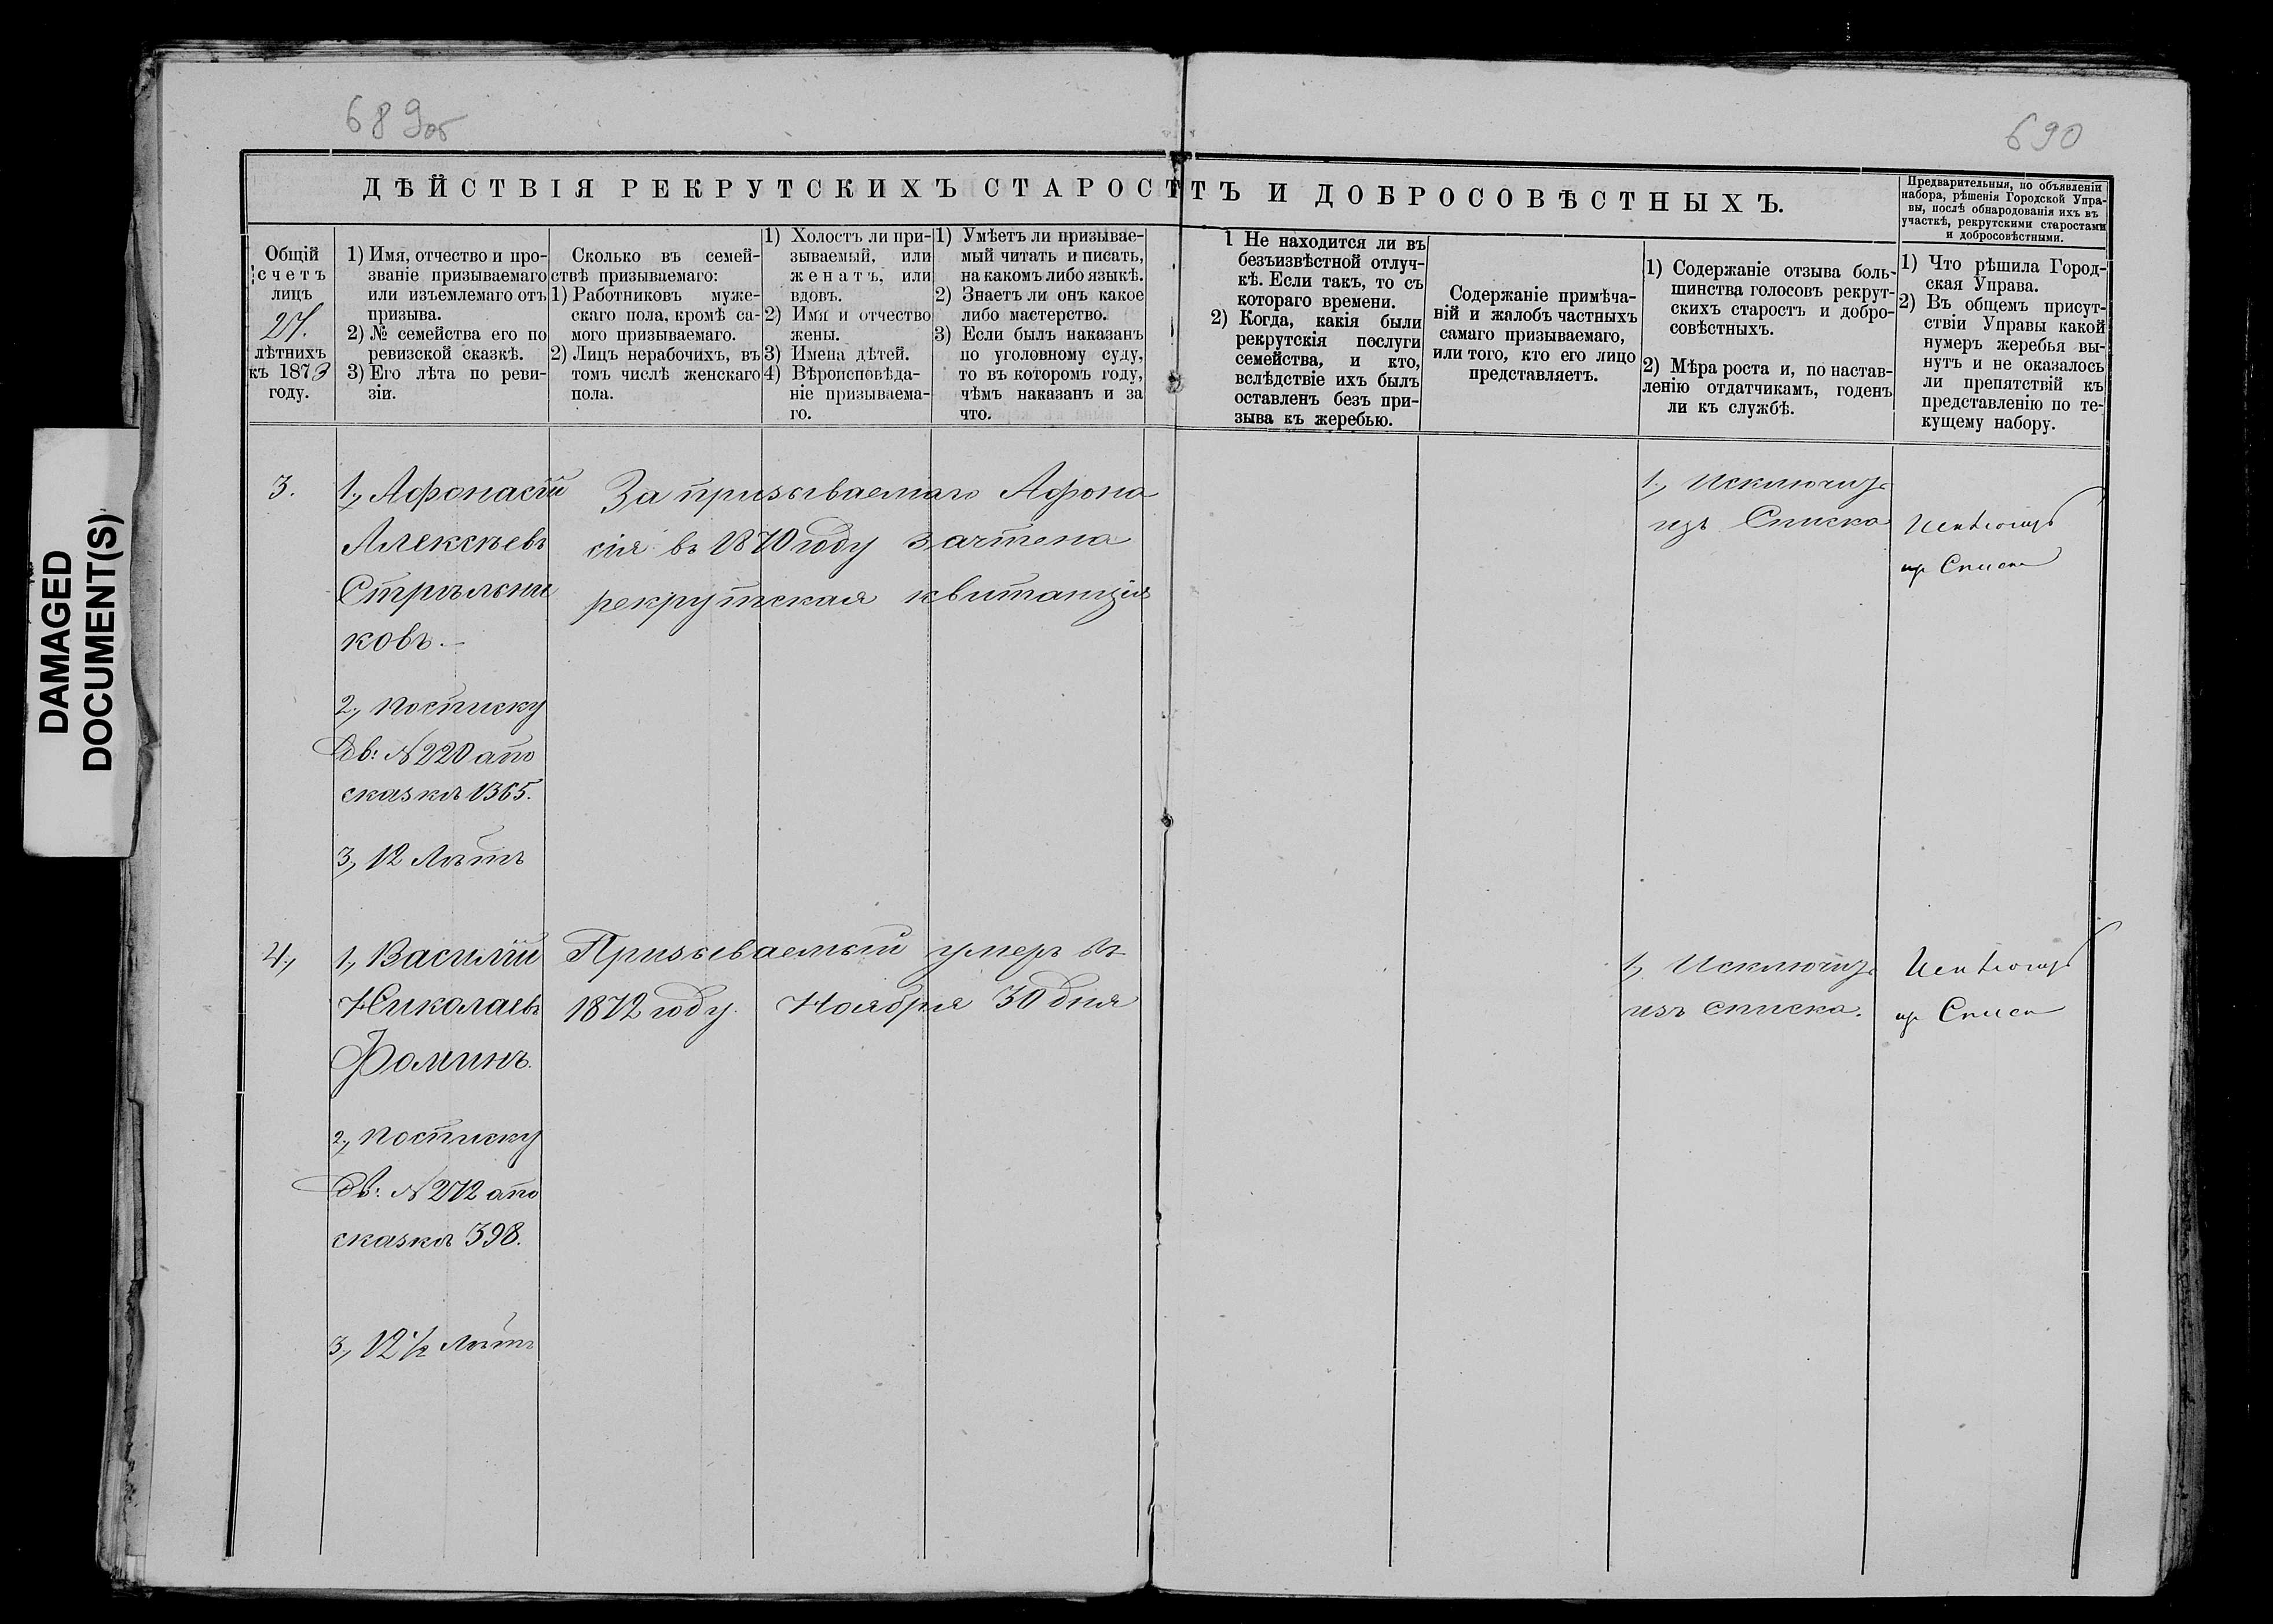 689об
690
DAMAGED
DOCUMENT(S)
ДѢЙСТВІЯ РЕКРУТСКИХЪ СТАРОСТЪ И ДОБРОСОВѢСТНЫХЪ.
Предварительныя, по объявленіи
набора, рѣшенія Городской Упра-
вы, послѣ обнародованія ихъ въ
участкѣ, рекрутскими старостами
и добросовѣстными.
Общій
счетъ
лицъ
27.
лѣтнихъ
къ 1873
году.
1) Имя, отчество и про-
званіе призываемаго
или изъемлемаго отъ
призыва.
2) № семейства его по
ревизской сказкѣ.
3) Его лѣта по реви-
зіи.
Сколько въ семей-
ствѣ призываемаго:
1) Работниковъ муже-
скаго пола, кромѣ са-
мого призываемаго.
2) Лицъ нерабочихъ, въ
томъ числѣ женскаго
пола.
1) Холостъ ли при-
зываемый, или
женатъ, или
вдовъ.
2) Имя и отчество
жены.
3) Имена дѣтей.
4) Вѣроисповѣда-
ніе призываема-
го.
1) Умѣетъ ли призывае-
мый читать и писать,
на какомъ либо языкѣ.
2) Знаетъ ли онъ какое
либо мастерство.
3) Если былъ наказанъ
по уголовному суду,
то въ которомъ году,
чѣмъ наказанъ и за
что.
1 Не находится ли въ
безъизвѣстной отлуч-
кѣ. Если такъ, то съ
котораго времени.
2) Когда, какія были
рекрутскія послуги
семейства, и кто,
вслѣдствіе ихъ былъ
оставленъ безъ при-
зыва къ жеребью.
Содержаніе примѣча-
ній и жалобъ частныхъ
самаго призываемаго,
или того, кто его лицо
представляетъ.
1) Содержаніе отзыва боль-
шинства голосовъ рекрут-
скихъ старостъ и добро-
совѣстныхъ.
2) Мѣра роста и, по настав-
ленію отдатчикамъ, годенъ
ли къ службѣ.
1) Что рѣшила Город-
ская Управа.
2) Въ общемъ присут-
ствіи Управы какой
нумеръ жеребья вы-
нутъ и не оказалось
ли препятствій къ
представленію по те-
кущему набору.
3.
1, Афонасій
Алексѣевъ
Стрѣльни
ковъ.-
2, по списку
дв: № 220 а по
сказкѣ 1365.
3, 12 Лѣтъ
За призываемаго Афона
сія въ 1870 году зачтена
рекрутская квитанція
1, Исключить
изъ Списка
Исключить
изъ Списка
4,
1, Василій
Николаевъ
Фоминъ.
2, по списку
дв: № 272 а по
сказкѣ 398.
3, 12 1/2 Лѣтъ
Призываемый умеръ въ
1872 году. Ноября 30 дня
1, Исключить
изъ списка.
Исключить
изъ Списка